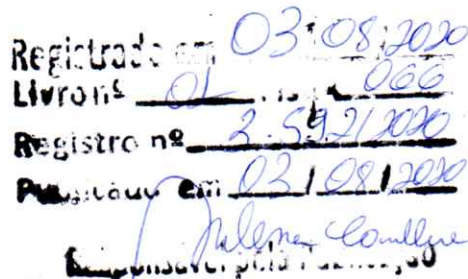 Registrado em 03/08/2020
Livro nº 01 066
Registro nº 2.592/2020
Publicado em 03/08/2020
Responsável pela Publicação